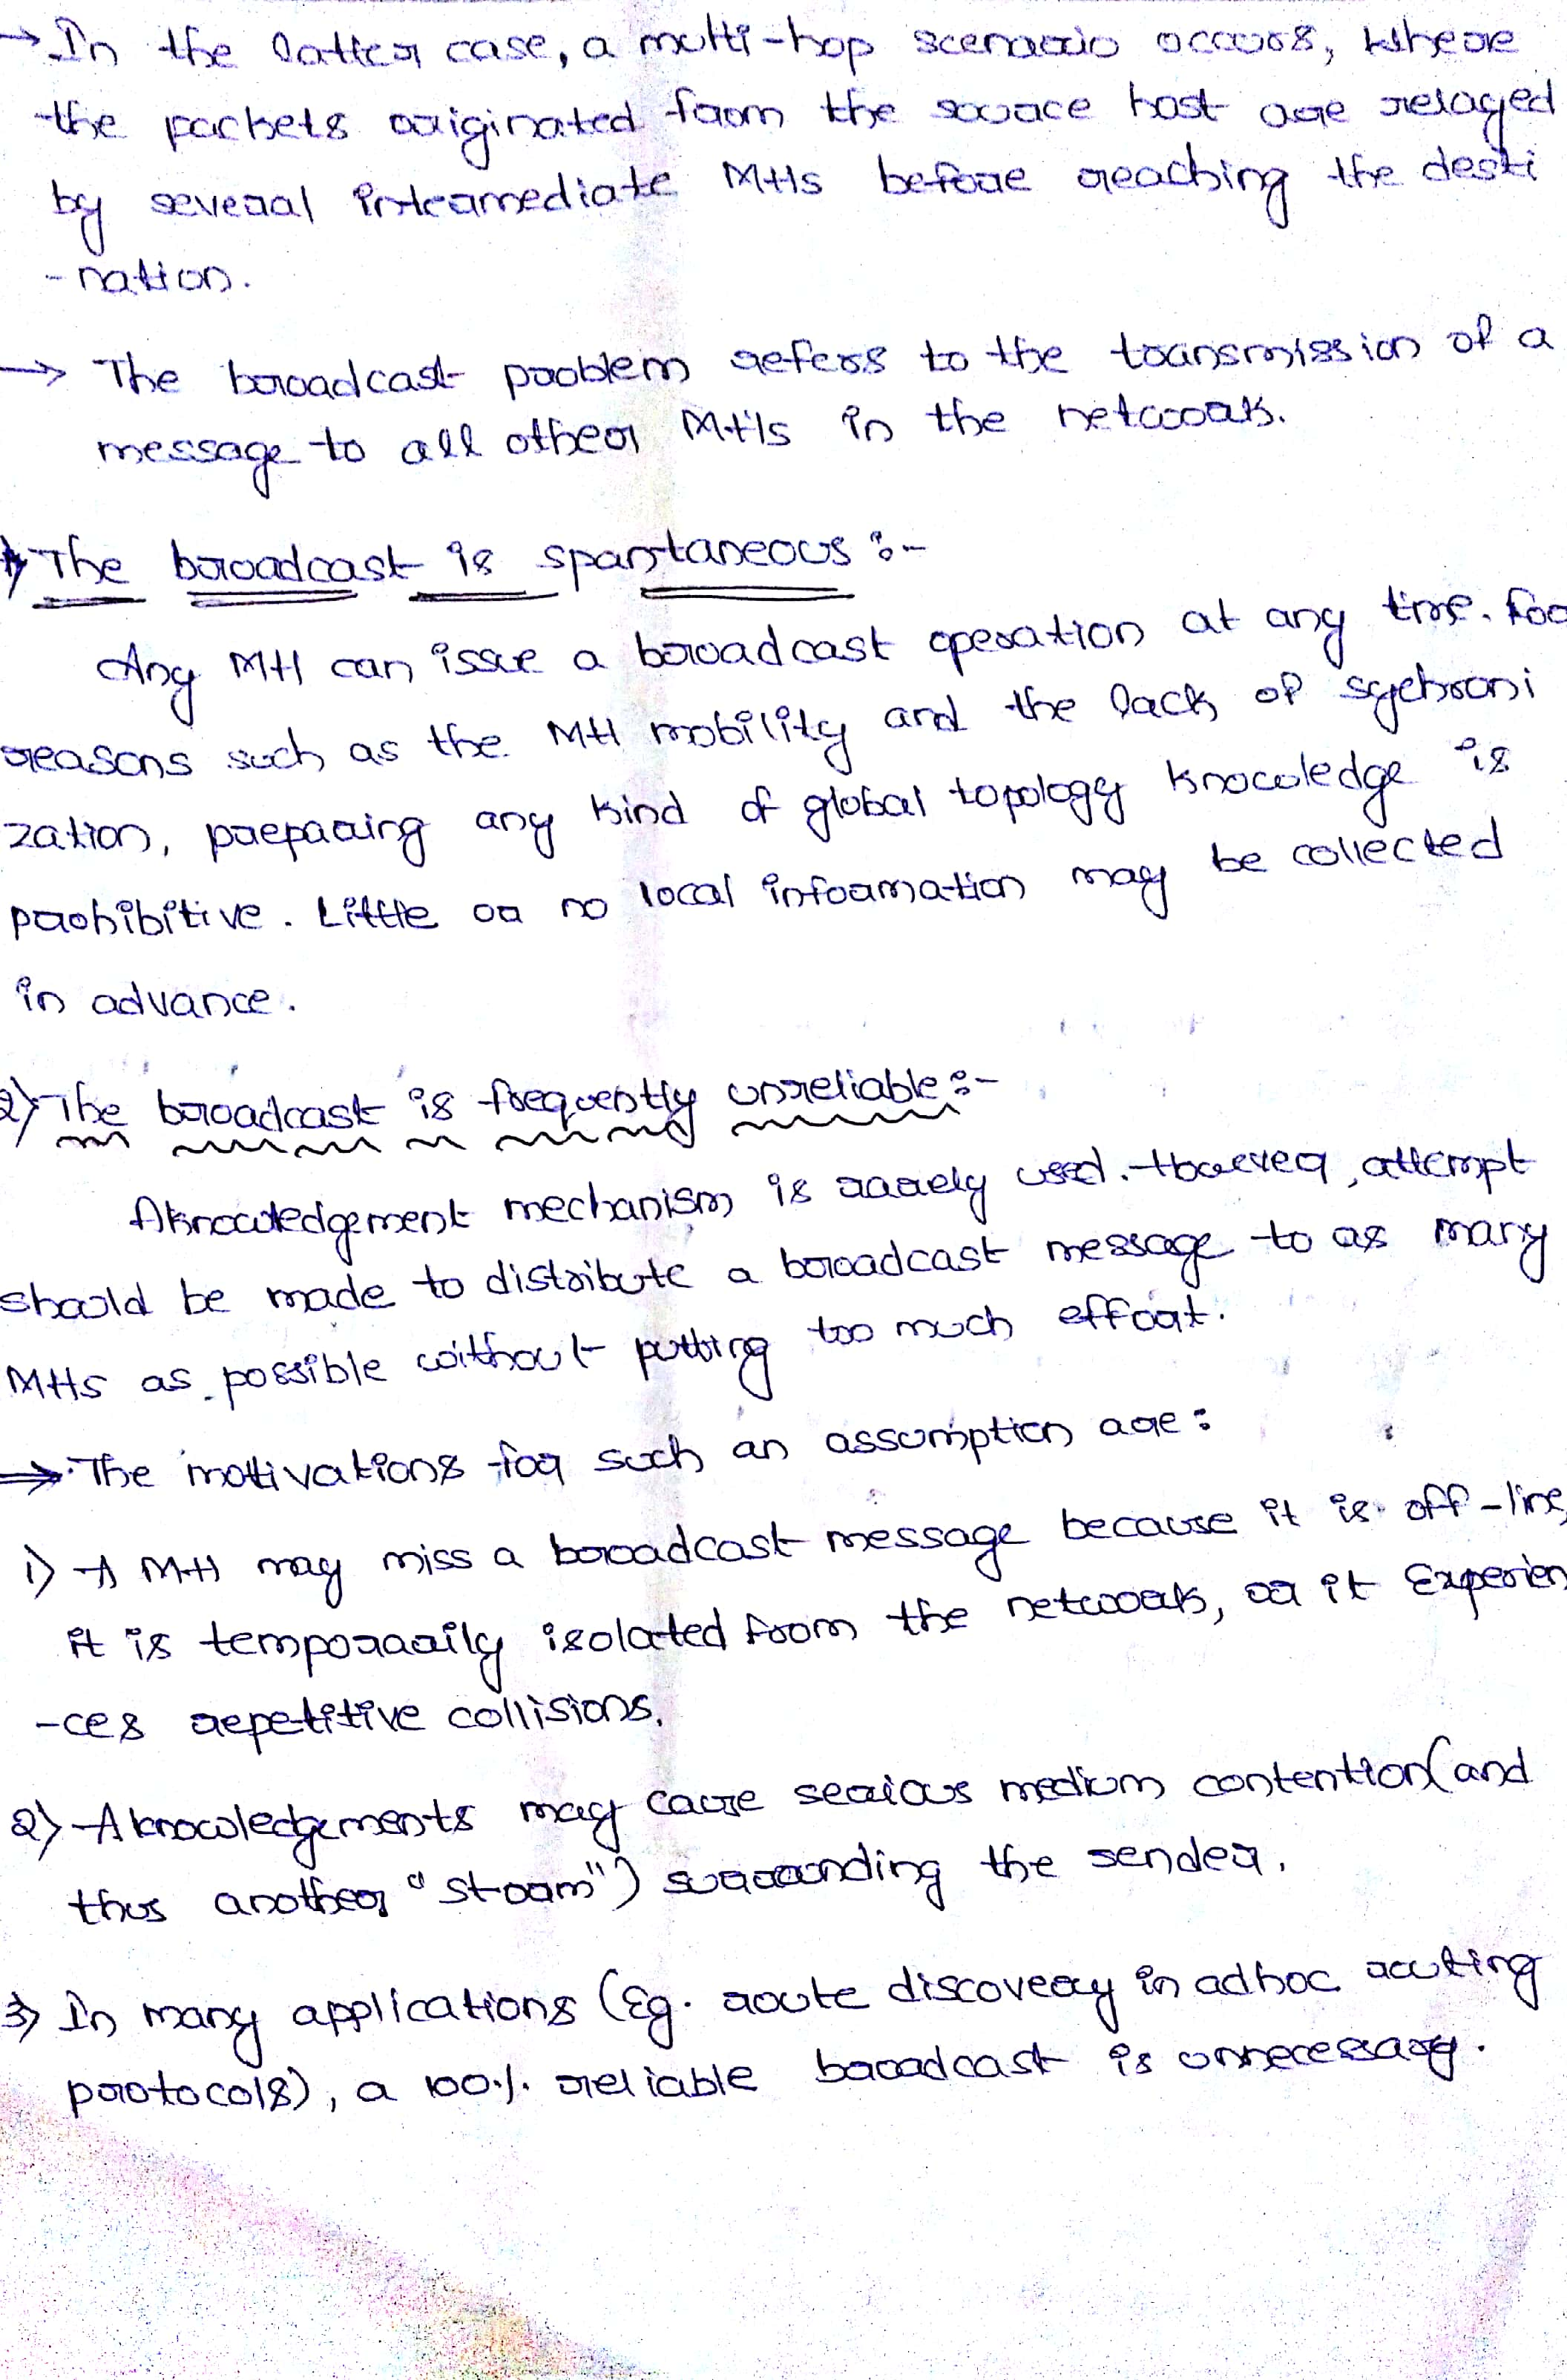 → In the latter case, a multi-hop scenario occurs, where
the packets originated from the source host are relayed
by several intermediate MHs before reaching the desti
-nation.
→ The broadcast problem refers to the transmission of a
message to all other MHs in the network.
1) The broadcast is spontaneous :-
Any MH can issue a broadcast operation at any time. For
reasons such as the MH mobility and the lack of sychroni
zation, preparing any kind of global topology knowledge is
prohibitive. Little or no local information may be collected
in advance.
2) The broadcast is frequently unreliable :-
Aknowledgement mechanism is rarely used. However, attempt
should be made to distribute a broadcast message to as many
MHs as possible without putting too much effort.
⇒ The motivations for such an assumption are :
1) A MH may miss a broadcast message because it is off-line,
it is temporarily isolated from the network, or it Experien
-ces repetitive collisions.
2) Aknowledgements may cause serious medium contention (and
thus another "storm") surrounding the sender.
3) In many applications (Eg. route discovery in adhoc routing
protocols), a 100% reliable broadcast is unnecessary.